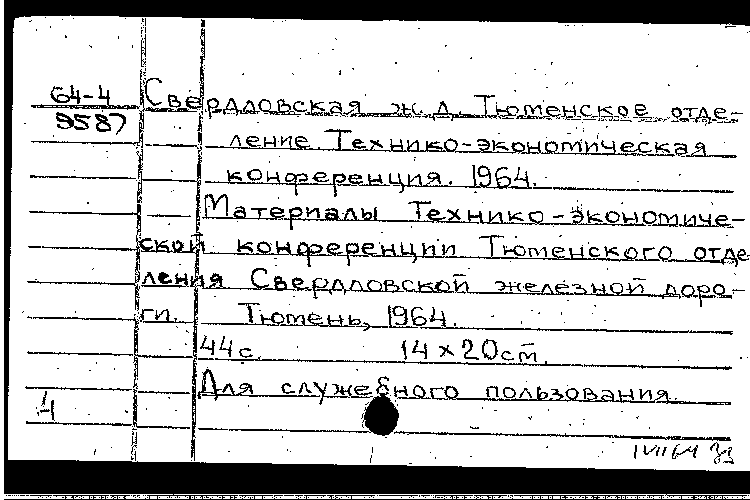 64-4
9587
Свердловская ж.д. Тюменское отде-
ление Технико-экономическая
конференция. 1964.
Материалы Технико-экономиче-
ской конференции Тюменского отде
ления Свердловской железной доро-
ги. Тюмень, 1964.
44с. 14×20см.
Для служебного пользования.